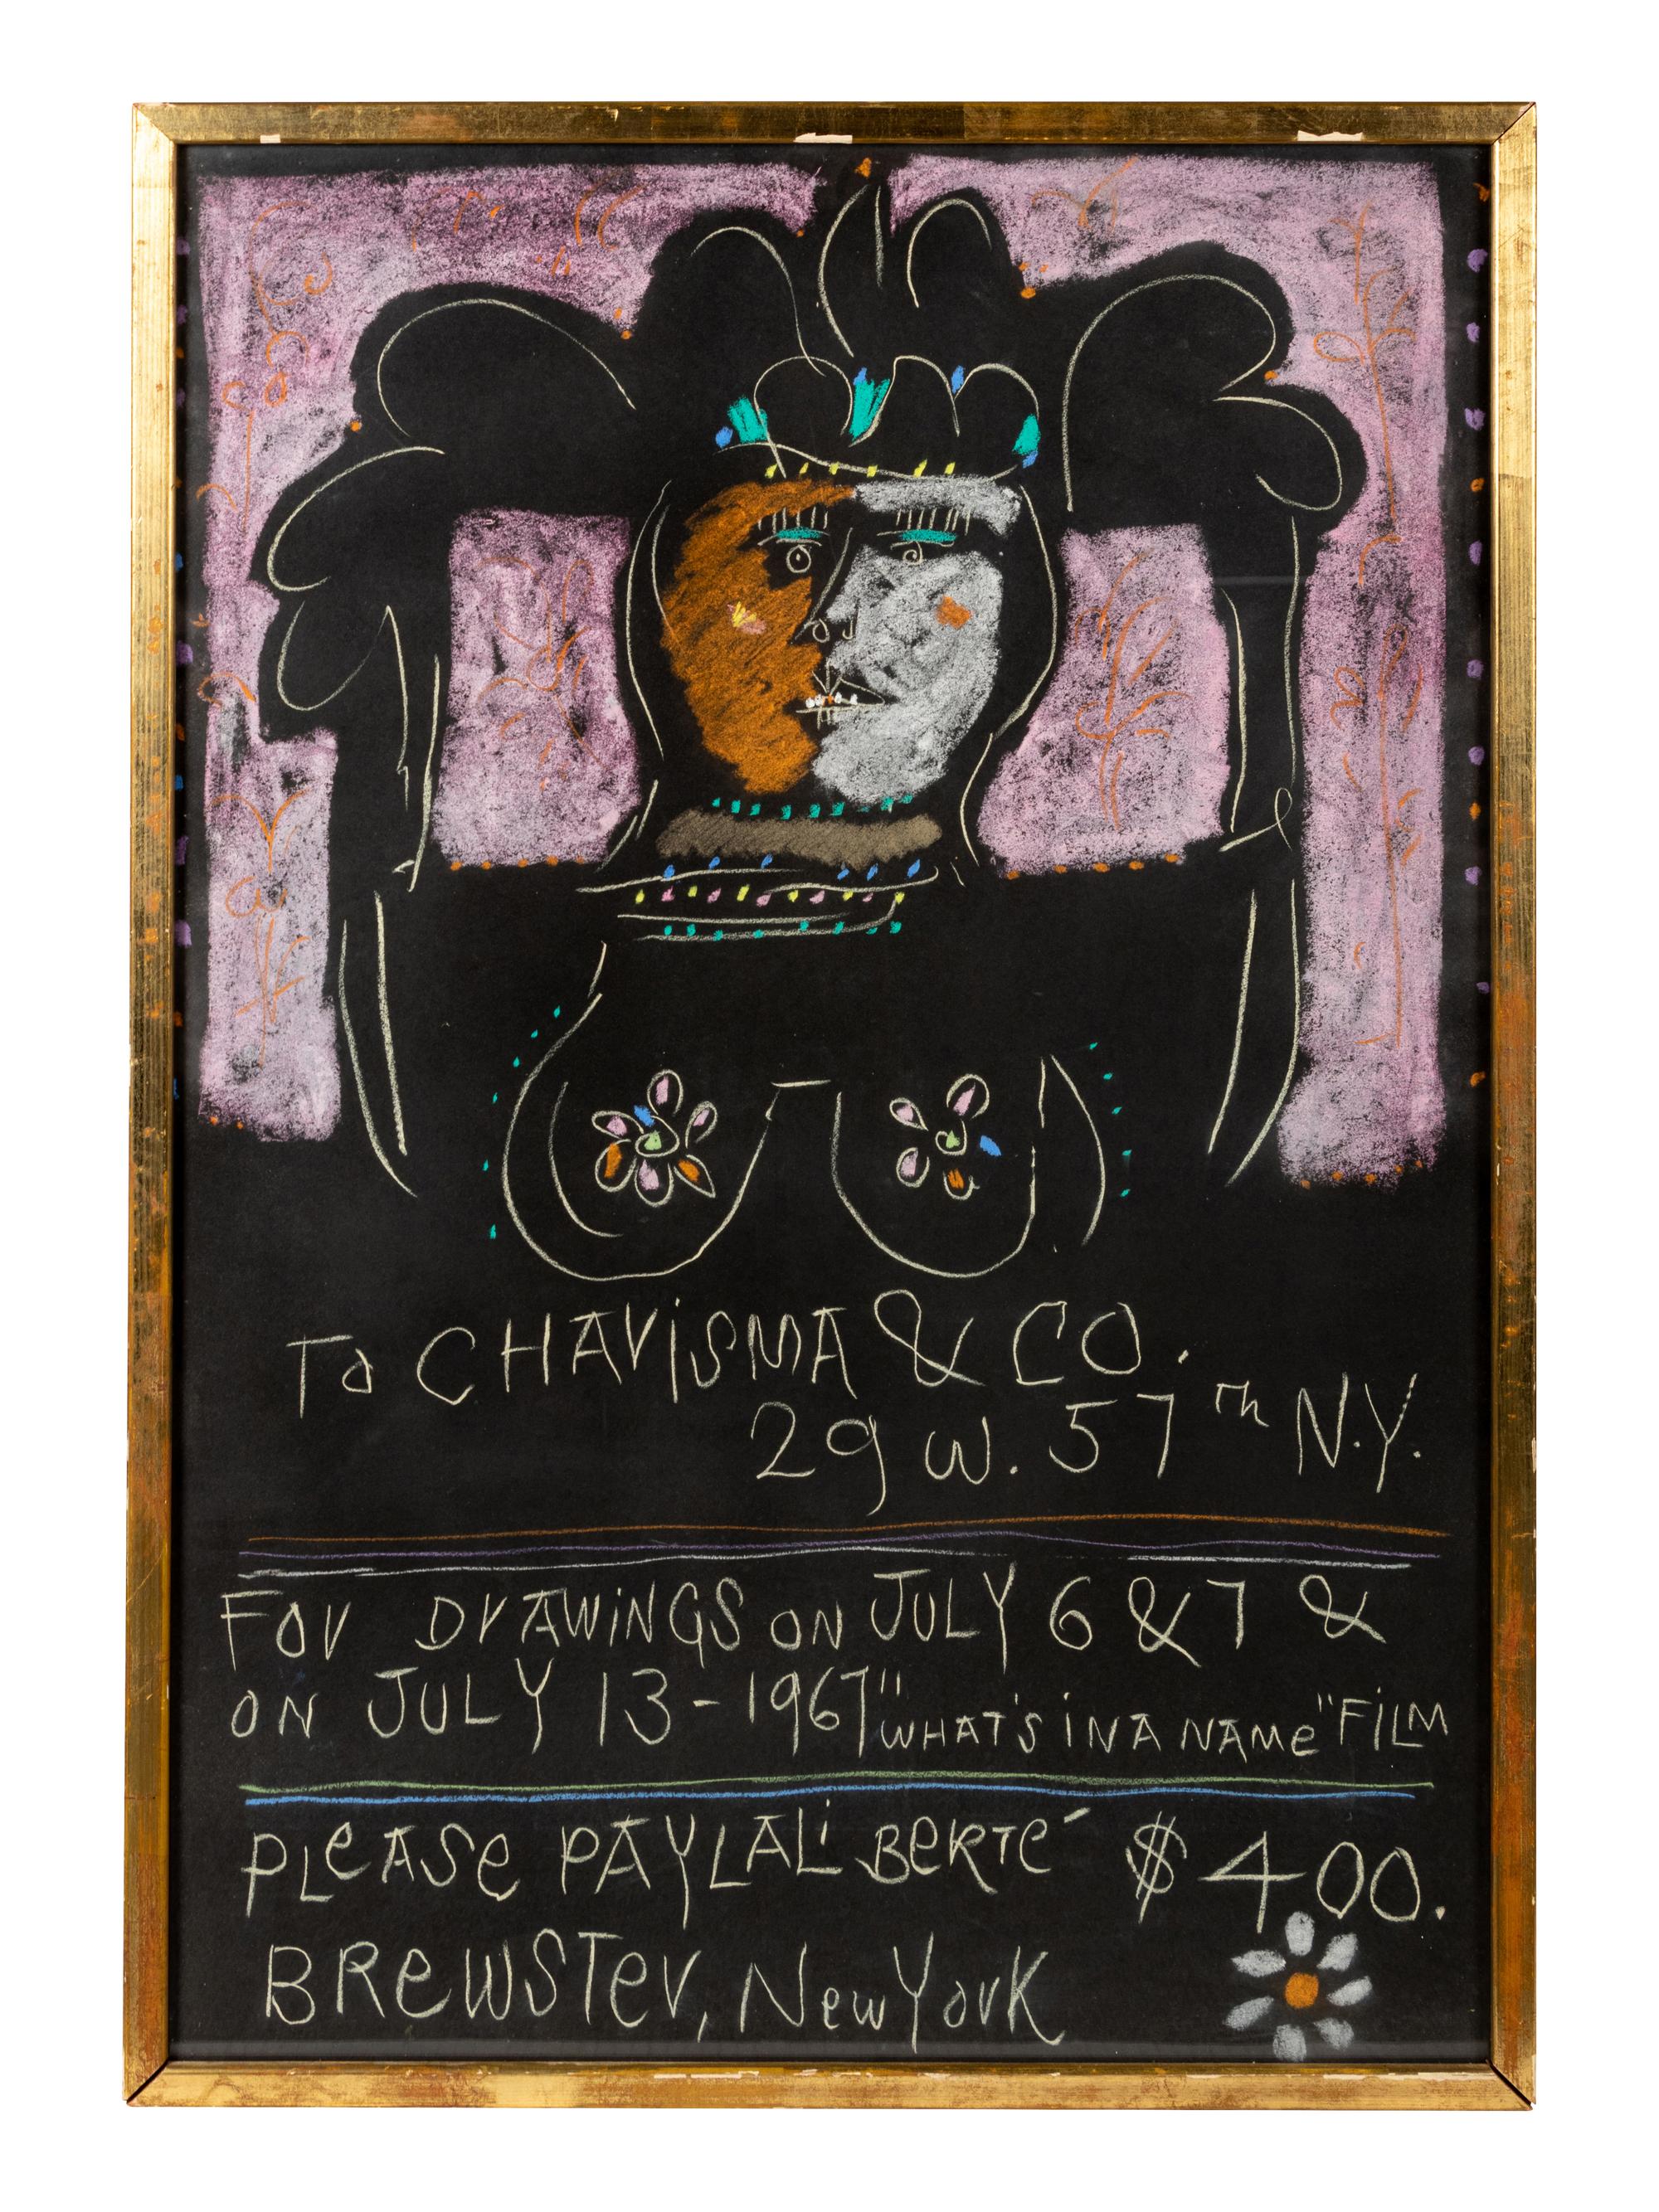 To CHArisMA & CO.
29 W. 57th N.Y.
For DrAWiNGS ON JULY 6 & 7 &
ON JULY 13 - 1967 "WHAT'S iN A NAMe" FiLM
PLeASe PAY LALiBeRTe´ $400.
BReWSTer, New York